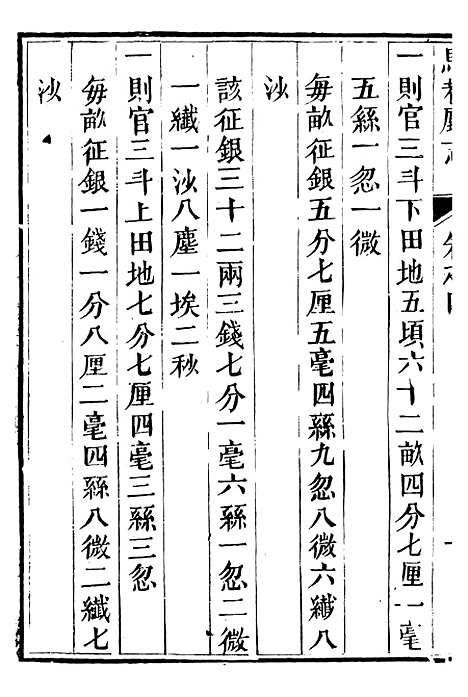 一則官三斗下田地五頃六十二畝四分七厘一毫
五絲一忽一微
每畝征銀五分七厘五毫四絲九忽八微六纖八
沙
該征銀三十二兩三錢七分一毫六絲一忽二微
一纖一沙八塵一埃二秒
一則官三斗上田地七分七厘四毫三絲三忽
每畝征銀一錢一分八厘二毫四絲八微二纖七
沙